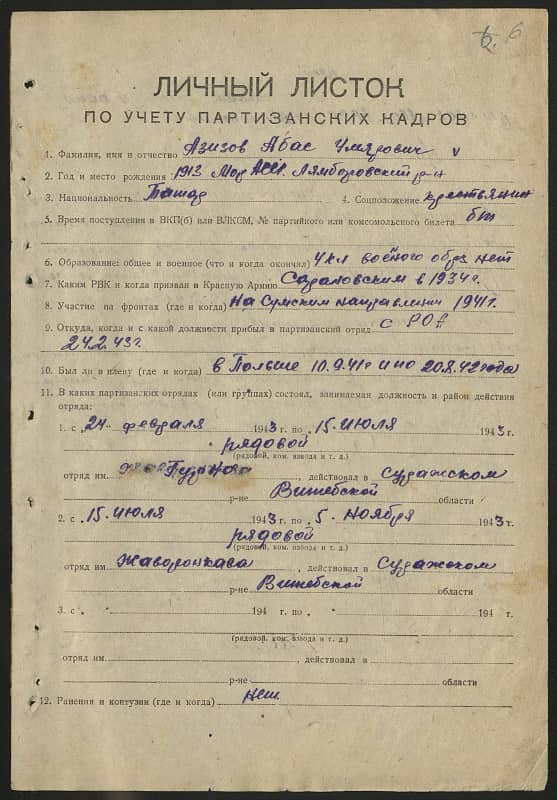 6. 6
ЛИЧНЫЙ ЛИСТОК
ПО УЧЕТУ ПАРТИЗАНСКИХ КАДРОВ
1. Фамилия, имя и отчество Азизов Абас Умярович v
2. Год и место рождения 1913 Мор АССР. Лямборовский р-н
3. Национальность Татар 4. Соцположение крестьянин
5. Время поступления в ВКП(б) или ВЛКСМ, № партийного или комсомольского билета бп
6. Образование: общее и военное (что и когда окончил) 4 кл военого обр. нет
7. Каким РВК и когда призван в Красную Армию в 1934 г.
8. Участие на фронтах (где и когда) на Сумском направлении 1941 г.
9. Откуда, когда и с какой должности прибыл в партизанский отряд с РОА
24.2.43 г.
10. Был ли в плену (где и когда) в Польше 10.9.41 г и по 20.8.42 года
11. В каких партизанских отрядах (или группах) состоял, занимаемая должность и район действия
отряда:
1. с 24 февраля 1943 г. по 15 июля 1943 г.
рядовой
(рядовой, ком. взвода и т. д.)
отряд им. , действовал в Суражском
р-не Витебской области
2. с 15 июля 1943 г. по 5 ноября 1943 г.
рядовой
(рядовой, ком. взвода и т. д.)
отряд им. Жаворонкава , действовал в Суражском
р-не Витебской области
3. с 194 г. по 194 г.
(рядовой, ком. взвода и т. д.)
отряд им. , действовал в
р-не области
12. Ранения и контузии (где и когда) нет.